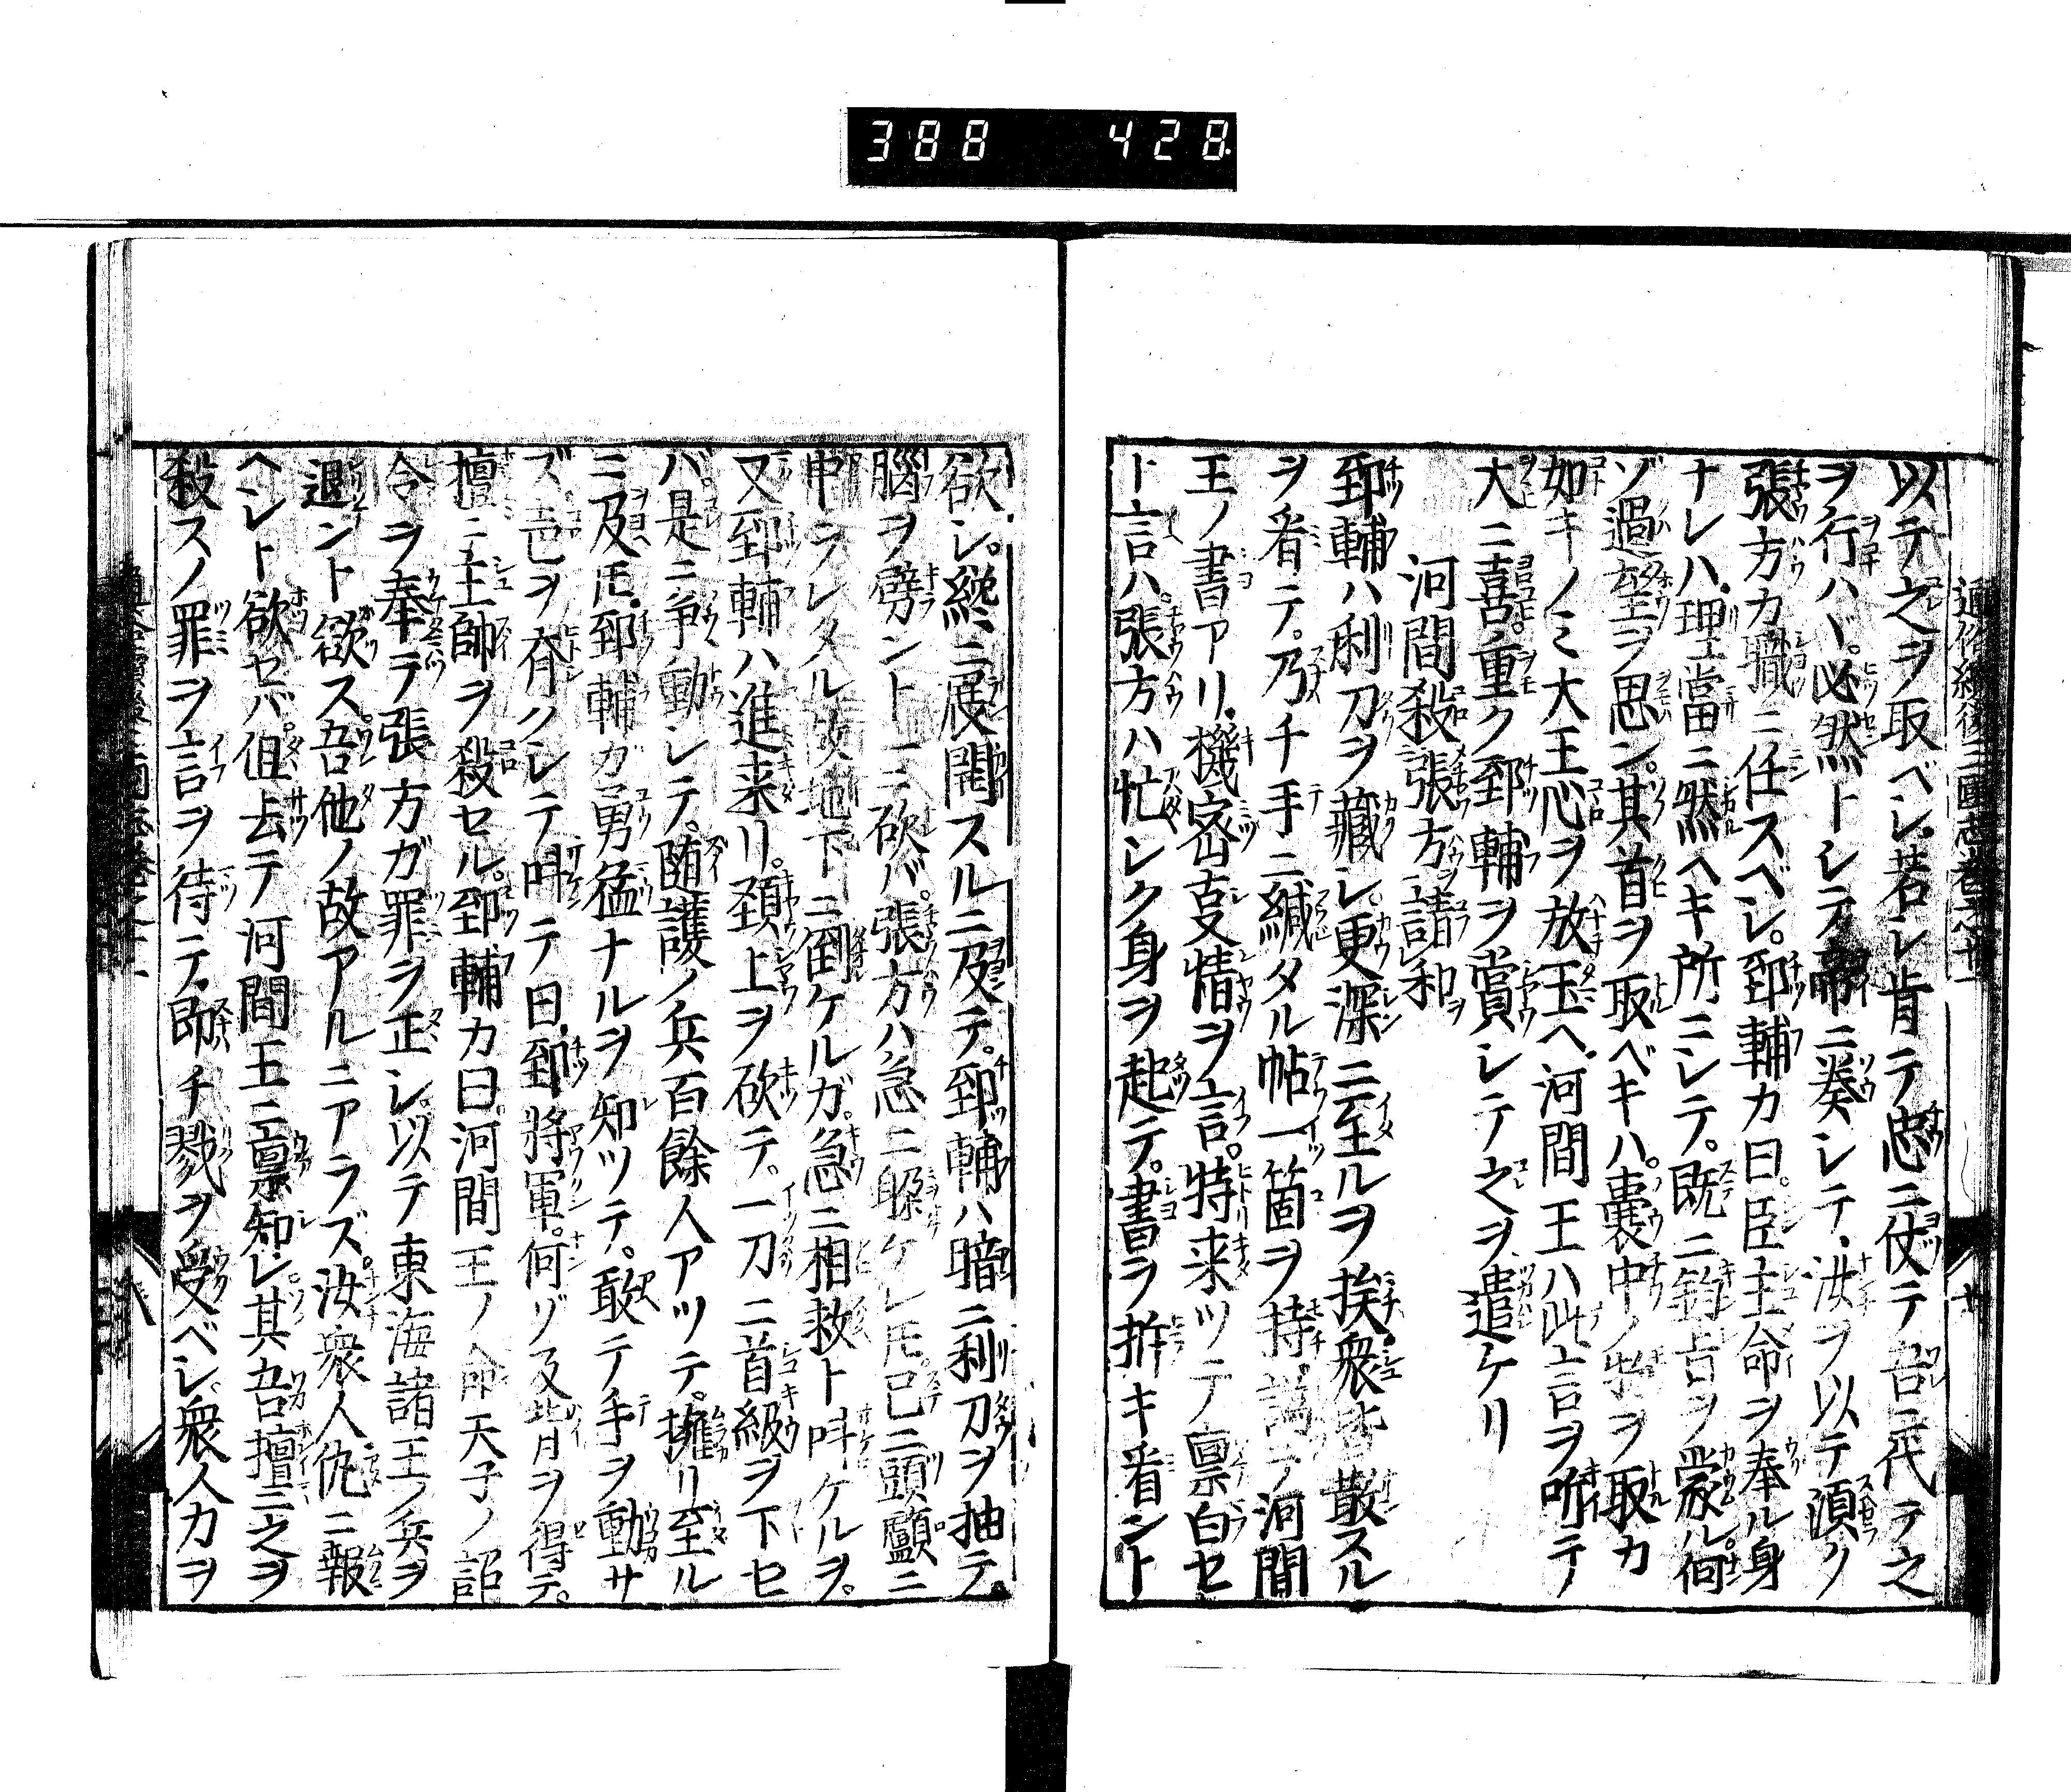 388 428
通俗續後三國志卷之廿
以テ之ヲ取ベシ若シ肯テ忠ニ仗テ吾ニ代テ之
ヲ行ハヾ必然トシテ帝ニ奏シテ汝ヲ以テ須ク
張方カ職ニ任スベシ郅輔カ曰臣主命ヲ奉ル身
ナレハ理當ニ然ヘキ所ミシテ既ニ鈞旨ヲ蒙ル何
ゾ過望ヲ思ン其首ヲ取ベキハ囊中ノ物ヲ取カ
如キノミ大王心ヲ放玉ヘ河間王ハ此言ヲ听テ
大ニ喜重ク郅輔ヲ賞シテ之ヲ遣ケリ
河間殺張方請和
郅輔ハ利刀ヲ藏シ更深ニ至ルヲ挨衆皆散スル
ヲ看テ乃チ手ニ緘タル帖一箇ヲ持謁テ河間
王ノ書アリ機密支情ヲ言特来ツテ禀白セ
ト言ハ張方ハ忙シク身ヲ起テ書ヲ拆キ看ント
欲シ纔ニ展開スルニ及テ郅輔ハ暗ニ利刀ヲ抽テ
腦ヲ劈ントニ砍バ張方ハ急ニ躱ケレ𪜈已ニ頭顱ニ
中ラレタル故地下ニ倒ケルガ急ニ相救ト呌ケルヲ
又郅輔ハ進来リ頚上ヲ砍テ一刀ニ首級ヲ下セ
バ是ニ争動シテ随護ノ兵百餘人アツテ擁リ至ル
ニ及𪜈郅輔ガ勇猛ナルヲ知ツテ敢テ手ヲ動サ
ズ㐌ヲ齊クシテ呌テ曰郅將軍何ゾ反背ヲ得テ
擅ニ主帥ヲ殺セル郅輔カ曰河間王ノ命天子ノ詔
令ヲ奉テ張方ガ罪ヲ正シ以テ東海諸王ノ兵ヲ
退ント欲ス吾他ノ故アルニアラズ汝衆人仇ニ報
ヘント欲セバ但去テ河間王ニ禀知シ其吾擅ニ之ヲ
殺スノ罪ヲ言ヲ待テ即チ戮ヲ受ベシ衆人カヲ